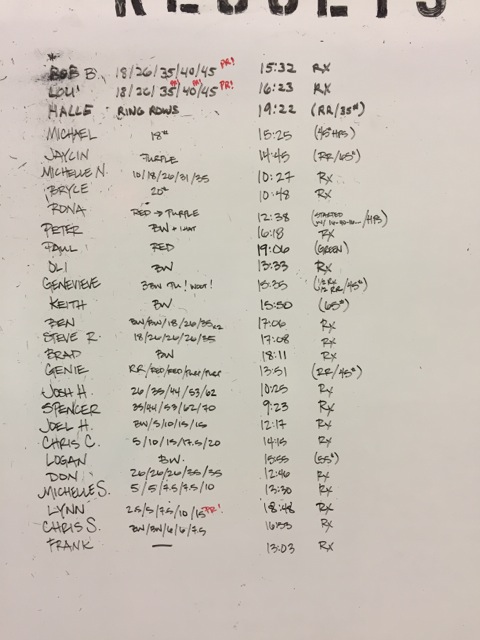 RESULTS
*
BOB B. 18/26/35/40/45 PR! 15:32 RX
LOU 18/26/35/40/45 PR! 16:23 RX
HALLE RING ROWS 19:22 (RR/35#)
MICHAEL 18# 15:25 (45# HPS)
JAYLIN PURPLE 14:45 (RR/65#)
MICHELLE N. 10/18/26/31/35 10:27 RX
BRYCE 20# 10:48 RX
RONA RED → PURPLE 12:38 (STARTED /HPS)
PETER BW + 1 MAT 16:18 RX
PAUL RED 19:06 (GREEN)
OLI BW 13:33 RX
GENEVIEVE 3 BW PU! WOOT! 15:35 (1/2 RX 1/2 RR/45#)
KEITH BW 15:50 (65#)
BEN BW/BW/18/26/35x2 17:06 RX
STEVE R. 18/26/26/26/35 17:08 RX
BRAD BW 18:11 RX
GENIE RR/RED/RED/PURP/PURP 13:51 (RR/45#)
JOSH H. 26/35/44/53/62 10:25 RX
SPENCER 35/44/53/62/70 9:23 RX
JOEL H. BW/5/10/15/15 12:17 RX
CHRIS C. 5/10/15/17.5/20 14:15 RX
LOGAN BW. 15:55 (55#)
DON 26/26/26/35/35 12:46 RX
MICHELLE S. 5/5/7.5/7.5/10 13:30 RX
LYNN 2.5/5/7.5/10/15 PR! 18:48 RX
CHRIS S. BW/BW/6/6/7.5 16:53 RX
FRANK — 13:03 RX